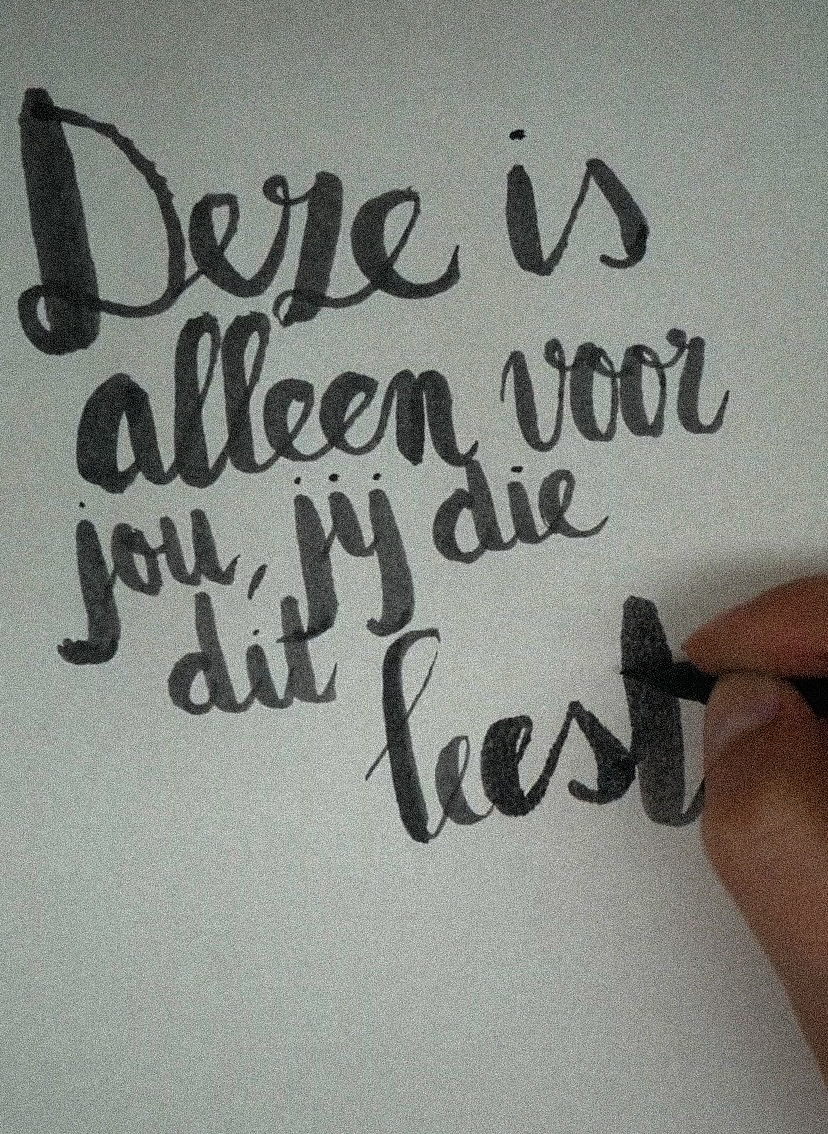 Deze is
alleen voor
jou, jij die
dit
leest